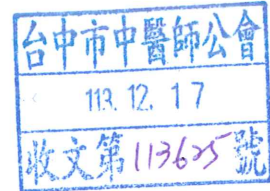 台中市中醫師公會
113. 12. 17
收文第113625號